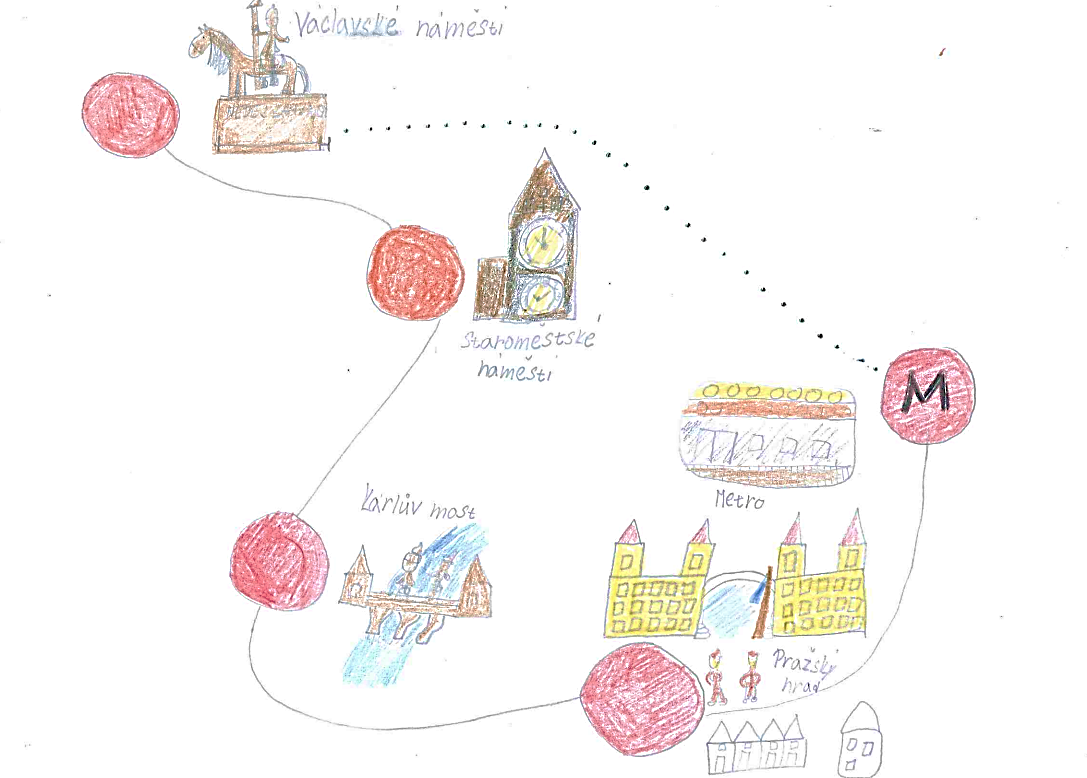 Václavské náměstí
Staroměstské
náměstí
M
Metro
Karlův most
Pražský
hrad